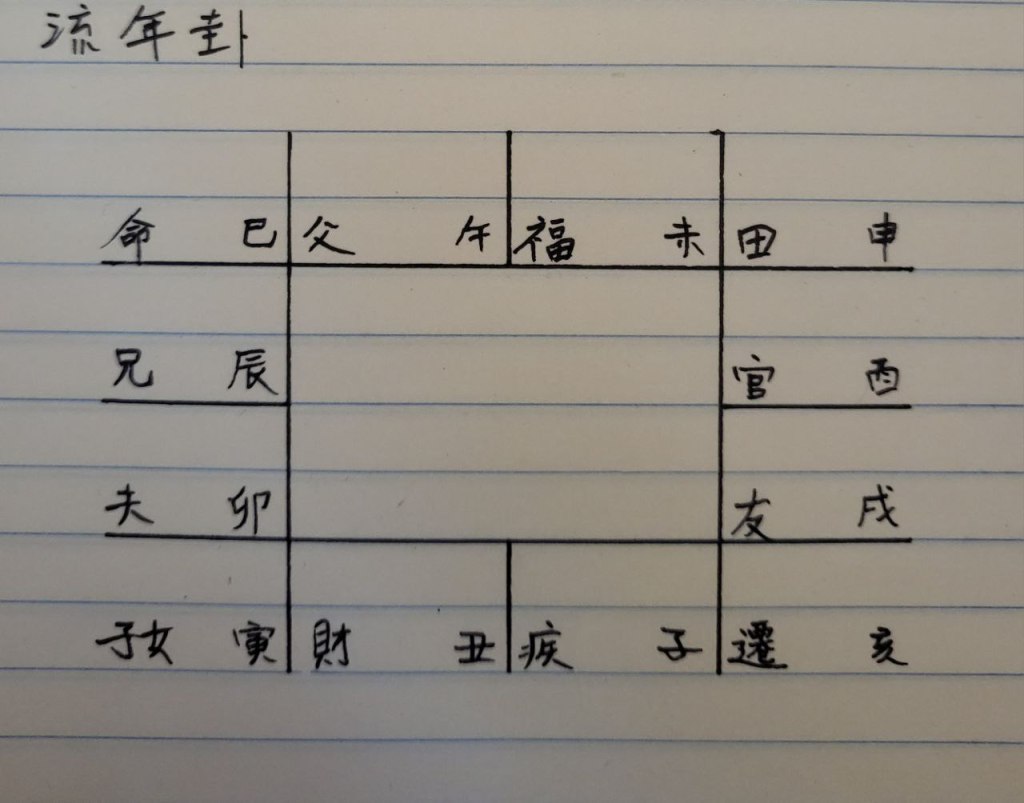 流年卦
命 巳 父 午 福 未 田 申
兄 辰 官 酉
夫 卯 友 戌
子女 寅 財 丑 疾 子 遷 亥